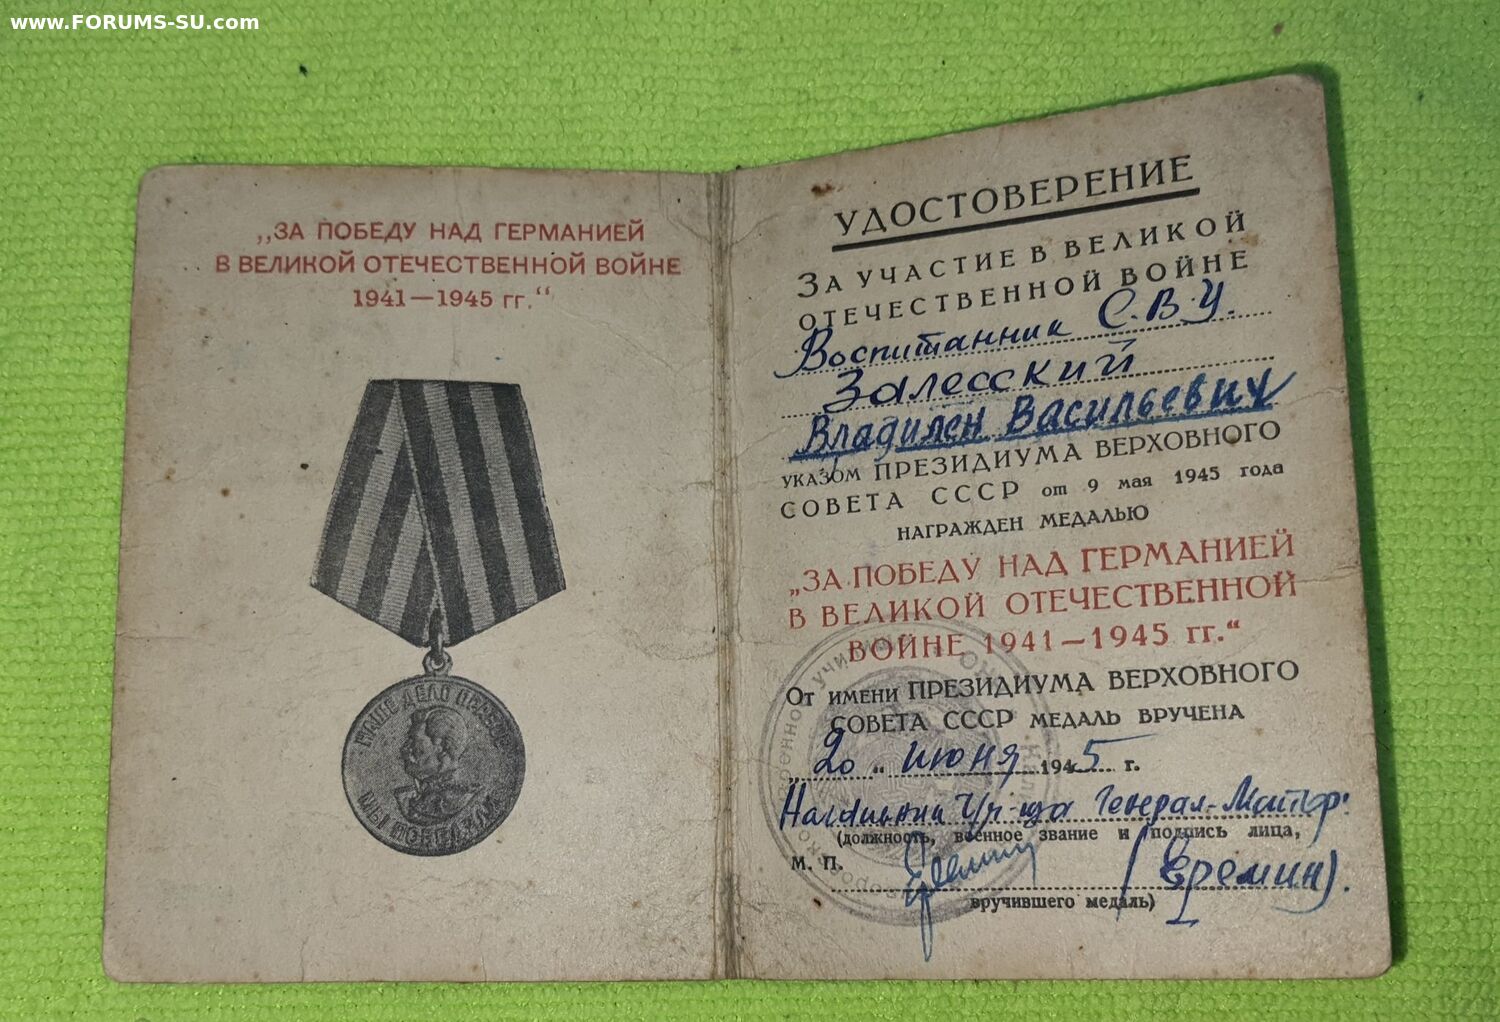 www.FORUMS-SU.com
„ЗА ПОБЕДУ НАД ГЕРМАНИЕЙ
В ВЕЛИКОЙ ОТЕЧЕСТВЕННОЙ ВОЙНЕ
1941—1945 гг.“
НАШЕ ДЕЛО ПРАВОЕ
МЫ ПОБЕДИЛИ
УДОСТОВЕРЕНИЕ
ЗА УЧАСТИЕ В ВЕЛИКОЙ
ОТЕЧЕСТВЕННОЙ ВОЙНЕ
Воспитанник С.В.У.
Залесский
Владилен Васильевич
УКАЗОМ ПРЕЗИДИУМА ВЕРХОВНОГО
СОВЕТА СССР от 9 мая 1945 года
НАГРАЖДЕН МЕДАЛЬЮ
„ЗА ПОБЕДУ НАД ГЕРМАНИЕЙ
В ВЕЛИКОЙ ОТЕЧЕСТВЕННОЙ
ВОЙНЕ 1941—1945 гг.“
От имени ПРЕЗИДИУМА ВЕРХОВНОГО
СОВЕТА СССР МЕДАЛЬ ВРУЧЕНА
„20“ июня 1945 г.
Начальник Уч-ща Генерал-Майор
(должность, военное звание и подпись лица,
М. П.
(Еремин).
вручившего медаль)